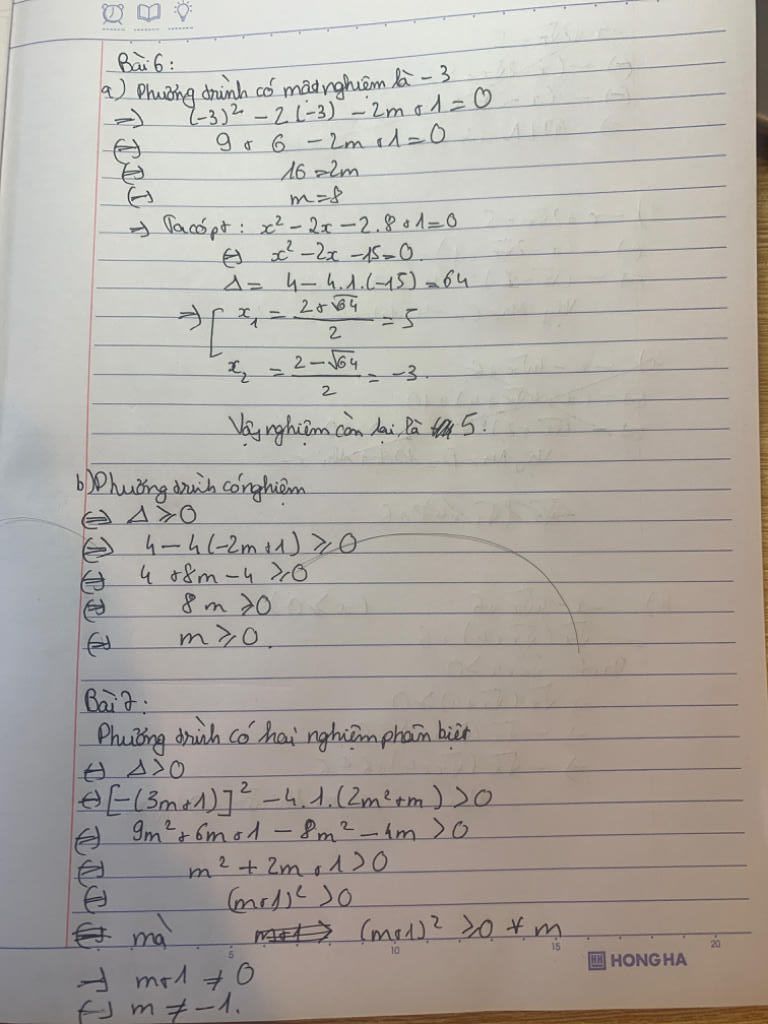 Bài 6:
a) Phương trình có một nghiệm là -3
=> (-3)² - 2(-3) - 2m + 1 = 0
<=> 9 + 6 - 2m + 1 = 0
<=> 16 = 2m
<=> m = 8
=> Ta có pt: x² - 2x - 2.8 + 1 = 0
<=> x² - 2x - 15 = 0.
Δ = 4 - 4.1.(-15) = 64
=> [ x₁ = (2 + √64)/2 = 5
x₂ = (2 - √64)/2 = -3.
Vậy nghiệm còn lại là 5.
b) Phương trình có nghiệm
<=> Δ ≥ 0
<=> 4 - 4(-2m + 1) ≥ 0
<=> 4 + 8m - 4 ≥ 0
<=> 8m ≥ 0
<=> m ≥ 0.
Bài 7:
Phương trình có hai nghiệm phân biệt
<=> Δ > 0
<=> [-(3m + 1)]² - 4.1.(2m² + m) > 0
<=> 9m² + 6m + 1 - 8m² - 4m > 0
<=> m² + 2m + 1 > 0
<=> (m + 1)² > 0
mà (m + 1)² ≥ 0 ∀ m
5 10 15 20
HH HONG HA
=> m + 1 ≠ 0
<=> m ≠ -1.